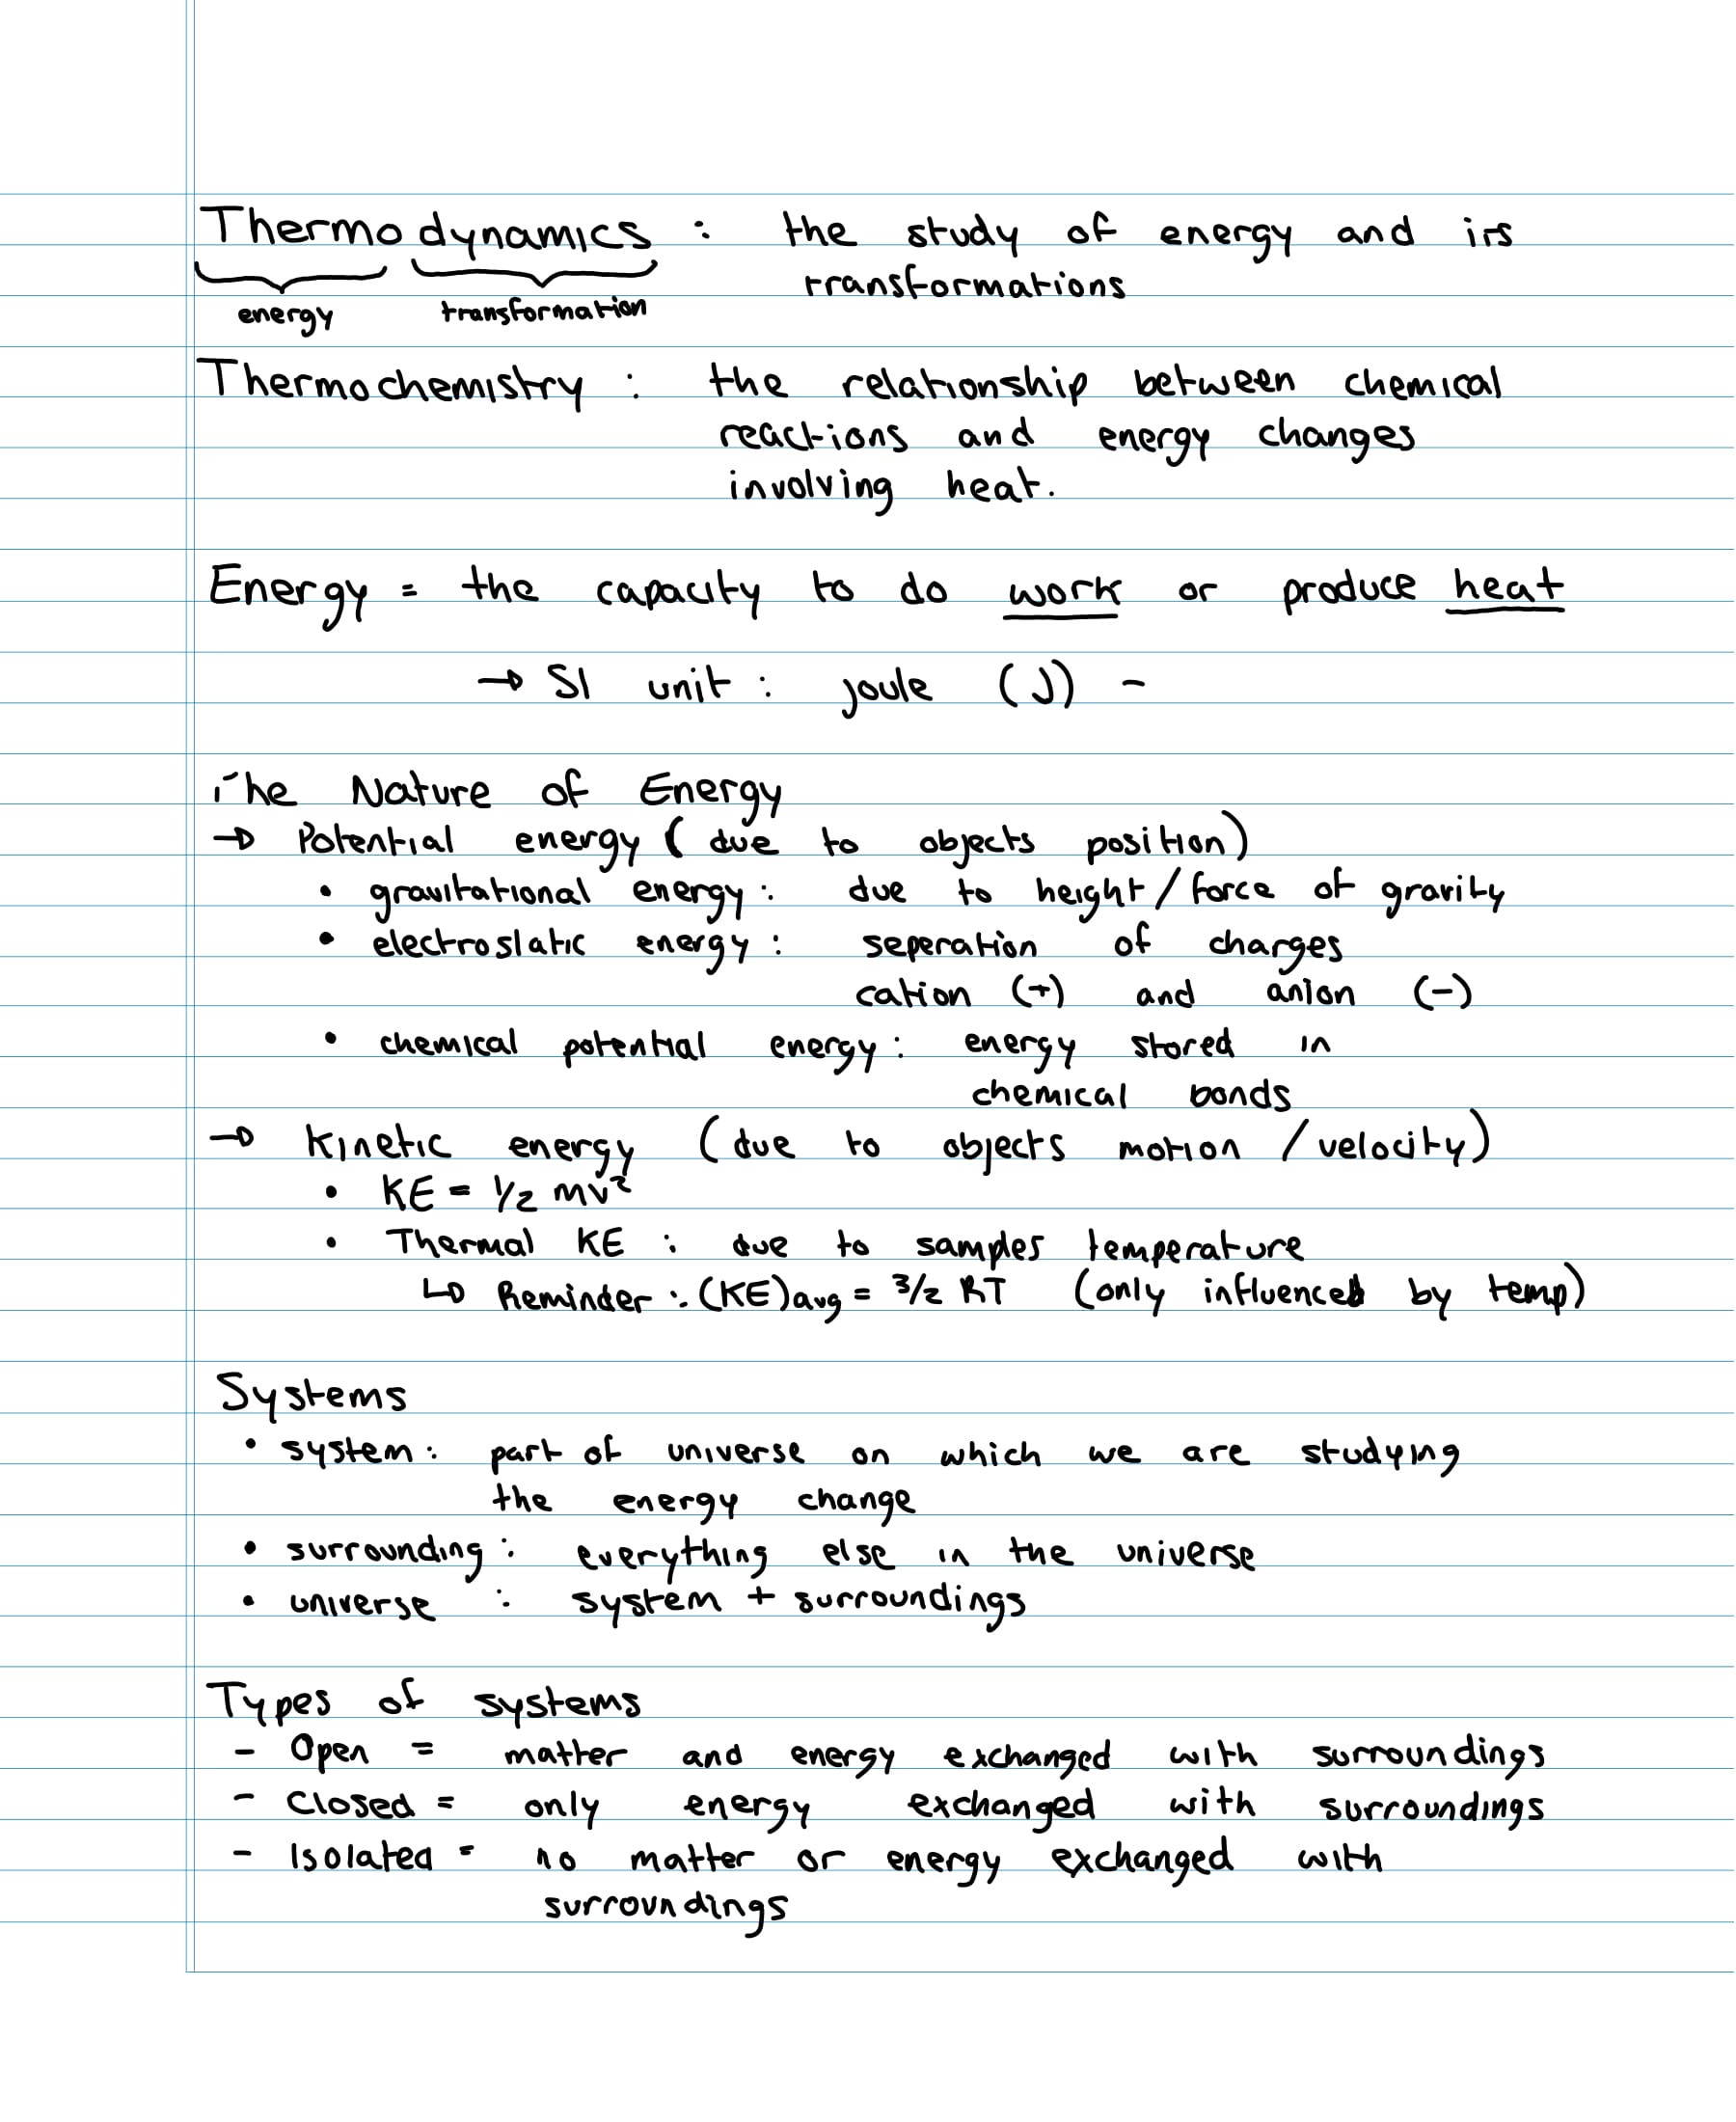 Thermodynamics : the study of energy and its
transformations
energy transformation
Thermochemistry : the relationship between chemical
reactions and energy changes
involving heat.
Energy = the capacity to do work or produce heat
→ SI unit : joule (J) -
The Nature of Energy
→ Potential energy ( due to objects position)
• gravitational energy : due to height / force of gravity
• electrostatic energy : seperation of charges
cation (+) and anion (-)
• chemical potential energy : energy stored in
chemical bonds
→ Kinetic energy (due to objects motion / velocity)
• KE = 1/2 mv²
• Thermal KE : due to samples temperature
↳ Reminder : (KE)avg = 3/2 RT (only influenced by temp)
Systems
• system : part of universe on which we are studying
the energy change
• surrounding : everything else in the universe
• universe : system + surroundings
Types of systems
- Open = matter and energy exchanged with surroundings
- Closed = only energy exchanged with surroundings
- Isolated = no matter or energy exchanged with
surroundings